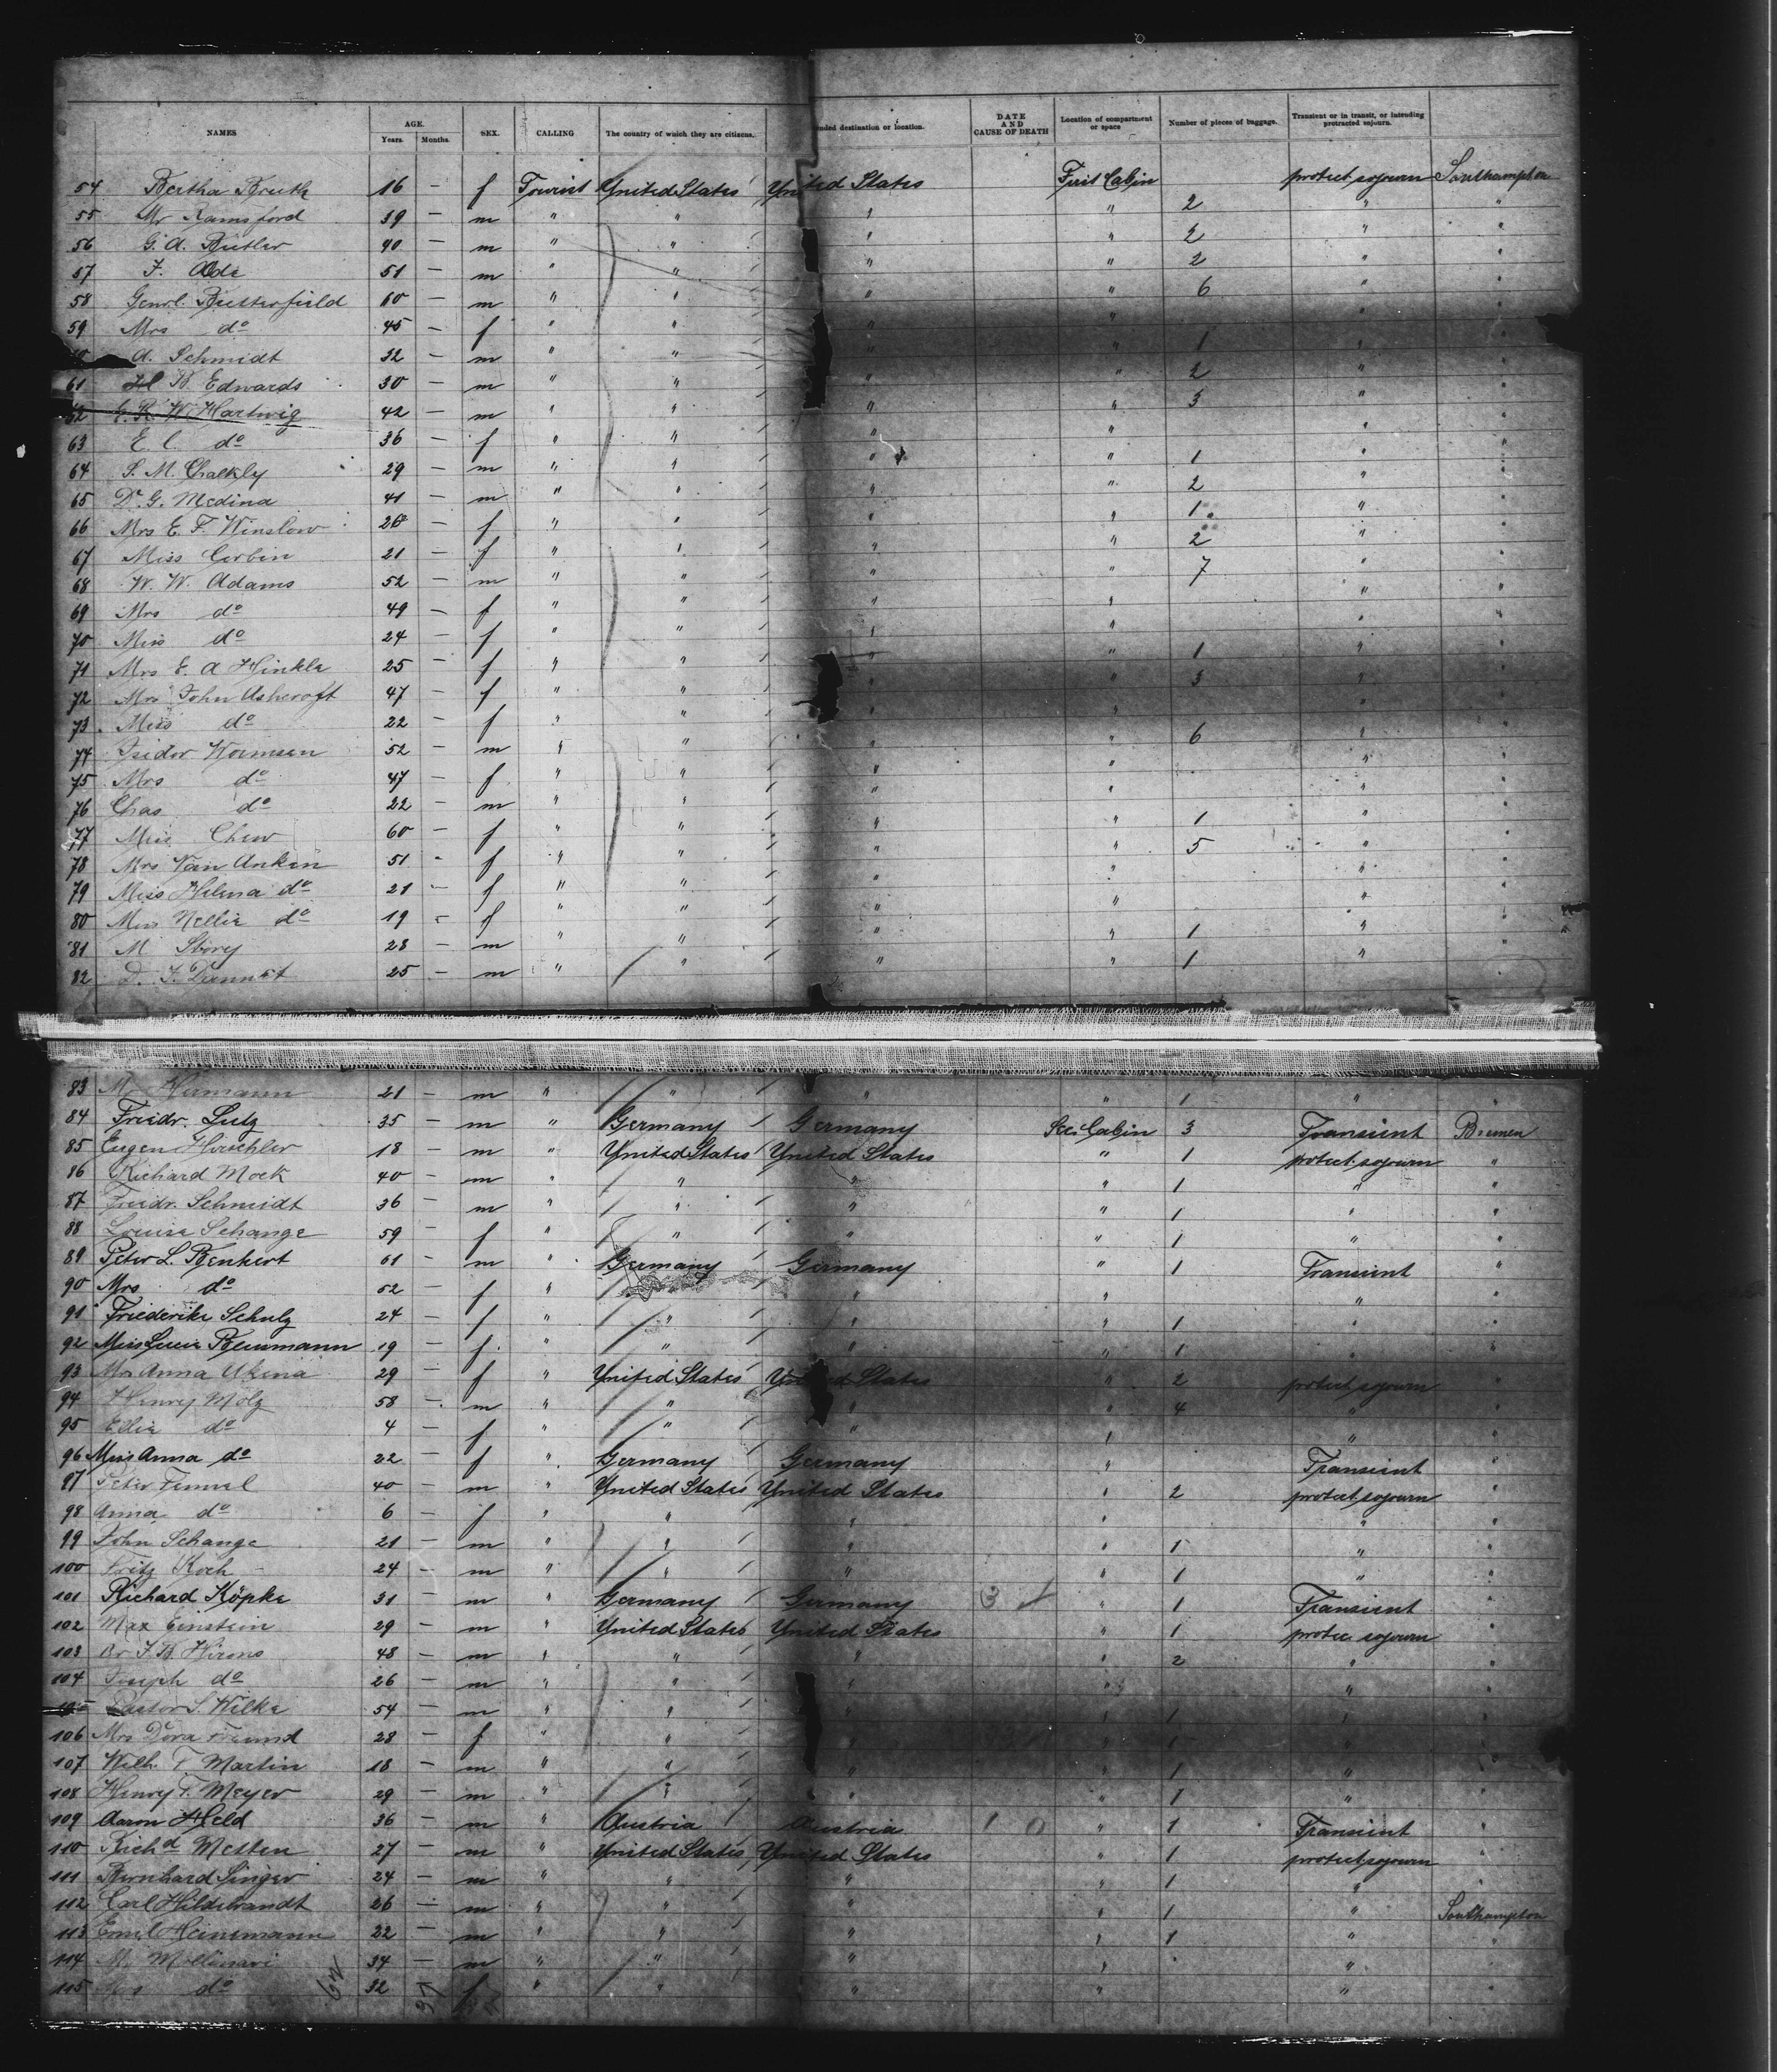 NAMES AGE. Years. Months. SEX. CALLING The country of which they are citizens. ended destination or location. DATE AND CAUSE OF DEATH Location of compartment or space Number of pieces of baggage. Transient or in transit, or intending protracted sojourn.
54 Bertha 16 — f Tourist United States United States First Cabin protect sojourn Southampton
55 Mr Ramsford 39 — m " " " " 2 " "
56 G. A. Butler 40 — m " " " " 2 " "
57 F. Ade 51 — m " " " " 2 " "
58 Genrl. Butterfield 60 — m " " " " 6 " "
59 Mrs do 45 — f " " " " " "
A. Schmidt 32 — m " " " " 1 " "
61 H B. Edwards 30 — m " " " " 2 " "
62 R. W. Hartwig 42 — m " " " " 3 " "
63 E. C. do 36 — f " " " " " "
64 S. M. Chalkly 29 — m " " " " 1 " "
65 Dr. G. Medina 41 — m " " " " 2 " "
66 Mrs E. F. Winslow 26 — f " " " " 1 " "
67 Miss Corbin 21 — f " " " " 2 " "
68 W. W. Adams 52 — m " " " " 7 " "
69 Mrs do 49 — f " " " " " "
70 Miss do 24 — f " " " " " "
71 Mrs E. A Hinkle 25 — f " " " " 1 " "
72 Mrs John Ashcroft 47 — f " " " " 3 " "
73 Miss do 22 — f " " " " " "
74 Isidor Wormsen 52 — m " " " " 6 " "
75 Mrs do 47 — f " " " " " "
76 Chas do 22 — m " " " " " "
77 Miss Chew 60 — f " " " " 1 " "
78 Mrs Van Anken 51 - f " " " " 5 " "
79 Miss Helena do 21 — f " " " " " "
80 Miss Nellie do 19 — f " " " " " "
81 M Story 28 — m " " " " 1 " "
82 D. F. Dannat 25 — m " " " " 1 " "
83 M Hermann 21 — m " " " " 1 " "
84 Friedr. Lutz 35 — m " Germany Germany Sec. Cabin 3 Transient Bremen
85 Eugen Hirschler 18 — m " United States United States " 1 protect sojourn "
86 Richard Mock 40 — m " " " " 1 " "
87 Friedr. Schmidt 36 m " " " " 1 " "
88 Louise Schange 59 — f " " " " 1 " "
89 Peter L. Benkert 61 — m " Germany Germany " 1 Transient "
90 Mrs do 52 — f " " " " " "
91 Friederike Schulz 24 — f " " " " 1 " "
92 Miss Lucie 19 — f " " " " 1 " "
93 Mrs Anna Ukena 29 f " United States United States " 2 protect sojourn "
94 Henry Molz 58 — m " " " " 4 " "
95 Ellie do 4 — f " " " " " "
96 Miss Anna do 22 — f " Germany Germany " Transient "
97 Peter Fennel 40 — m " United States United States " 2 protect sojourn "
98 Anna do 6 — f " " " " " "
99 John Schange 21 — m " " " " 1 " "
100 Fritz Koch 24 — m " " " " 1 " "
101 Richard Köpke 31 — m " Germany Germany " 1 Transient "
102 Max Einstein 29 — m " United States United States " 1 protec sojourn "
103 Hirons 48 — m " " " " 2 " "
104 Joseph do 26 — m " " " " " "
105 Pastor S. Wilke 54 — m " " " " 1 " "
106 Mrs Dora Freund 28 — f " " " " 1 " "
107 Wilh. T. Martin 18 — m " " " " 1 " "
108 Henry F. Meyer 29 — m " " " " 1 " "
109 Aaron Held 36 — m " Austria Austria 1 0 " 1 Transient "
110 Richd Mesten 27 — m " United States United States " 1 protect sojourn "
111 Bernhard Singer 24 — m " " " " 1 " "
112 Carl Hildebrandt 26 — m " " " " 1 " Southampton
113 Emil Heinemann 22 — m " " " " 1 " "
114 M. Mollinari 34 — m " " " " "
115 Mrs do 32 f " " " " "